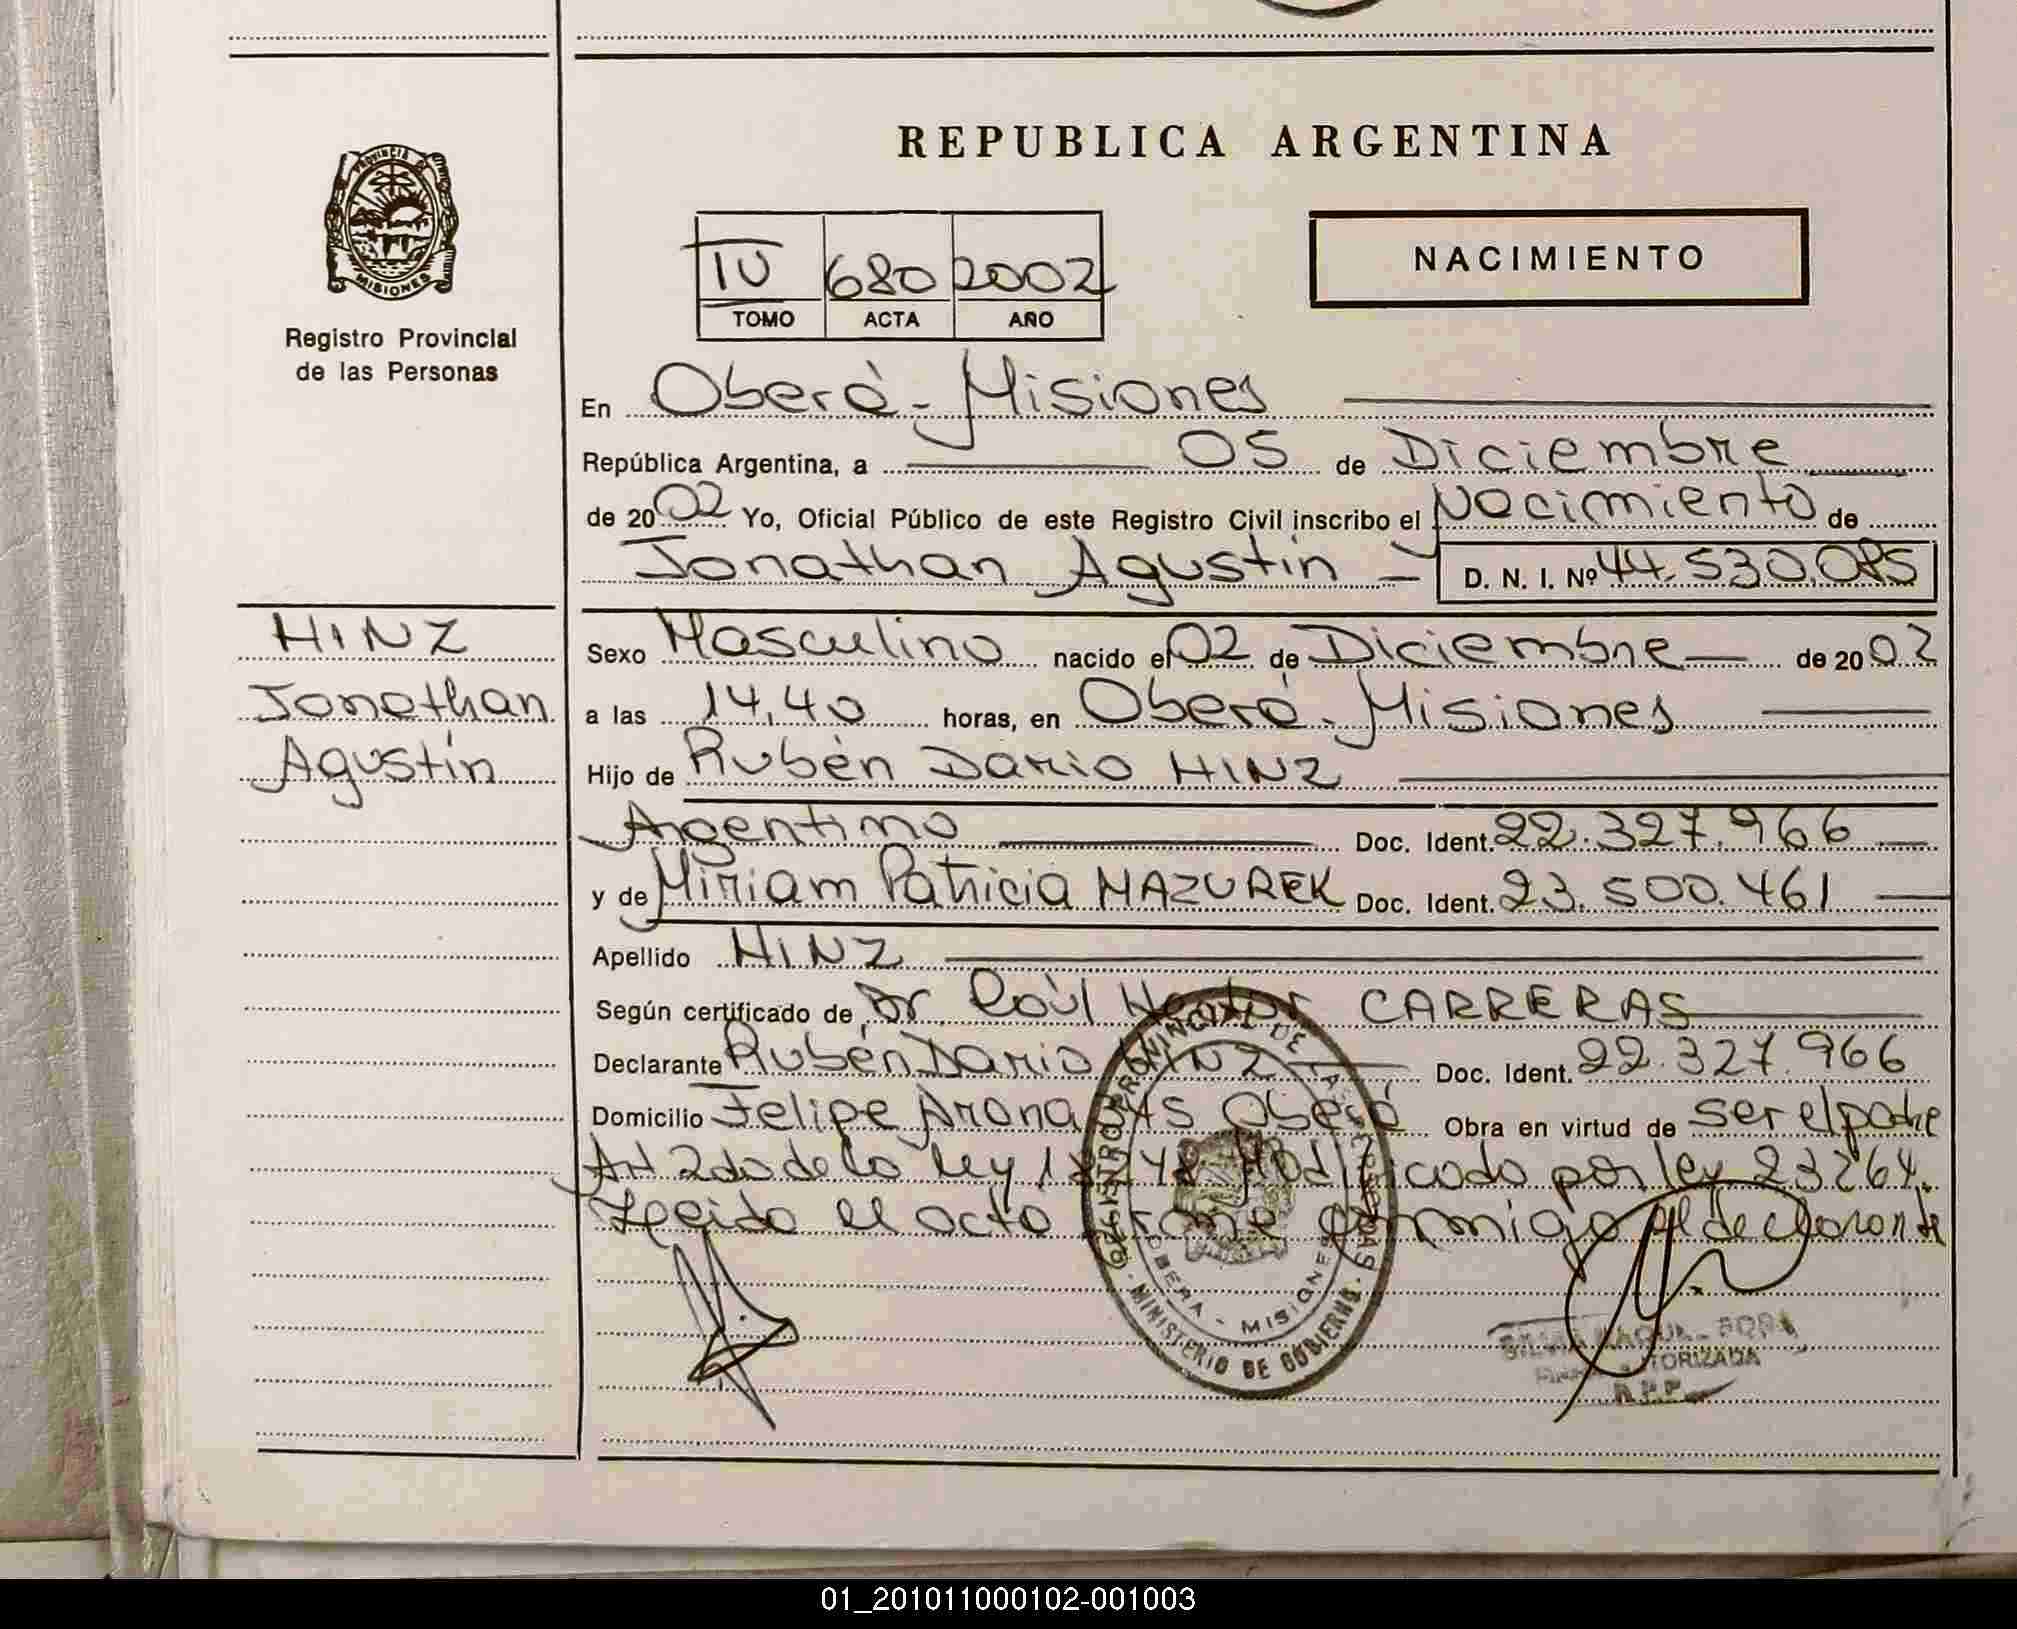 REPUBLICA ARGENTINA
PROVINCIA DE MISIONES
Registro Provincial
de las Personas
IV 680 2002
TOMO ACTA AÑO
NACIMIENTO
En Oberá - Misiones
República Argentina, a 05 de Diciembre
de 2002 Yo, Oficial Público de este Registro Civil inscribo el Nacimiento de
Jonathan Agustín D. N. I. Nº 44.530.085
HINZ
Jonathan
Agustín
Sexo Masculino nacido el 02 de Diciembre de 2002
a las 14,40 horas, en Oberá - Misiones
Hijo de Rubén Dario HINZ
Argentino Doc. Ident. 22.327.966
y de Miriam Patricia MAZUREK Doc. Ident. 23.500.461
Apellido HINZ
Según certificado de Dr Raúl Hector CARRERAS
Declarante Rubén Dario HINZ Doc. Ident. 22.327.966
Domicilio Felipe Arana Oberá Obra en virtud de ser el padre
Art 2do de la ley Modificado por ley 23264.
Leida el acta firma conmigo el declarante
REGISTRO PROVINCIAL DE LAS PERSONAS
OBERA - MISIONES
MINISTERIO DE GOBIERNO
AUTORIZADA
R.P.P.
01_201011000102-001003